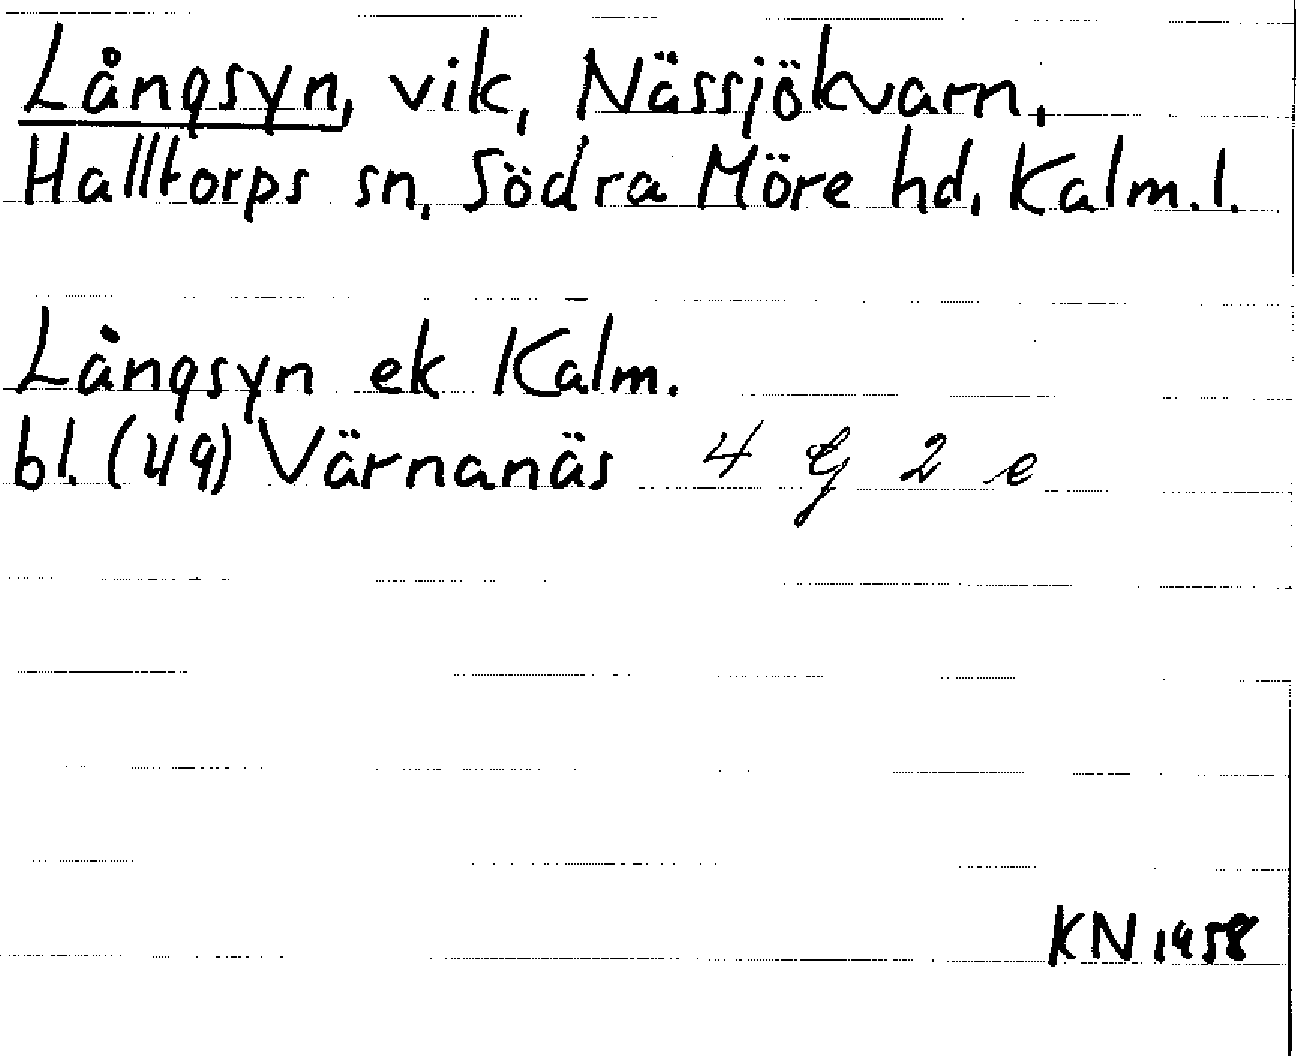 Långsyn, vik, Nässjökvarn,
Halltorps sn, Södra Möre hd, Kalm.l.
Långsyn ek Kalm.
bl. (49) Värnanäs 4 G 2 e
KN 1958